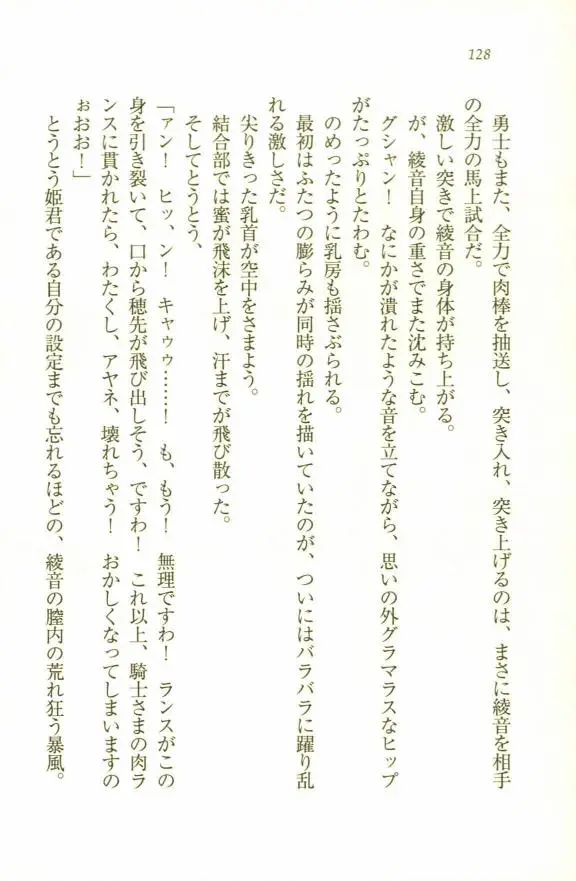 128
勇士もまた、全力で肉棒を抽送し、突き入れ、突き上げるのは、まさに綾音を相手
の全力の馬上試合だ。
激しい突きで綾音の身体が持ち上がる。
が、綾音自身の重さでまた沈みこむ。
グシャン！　なにかが潰れたような音を立てながら、思いの外グラマラスなヒップ
がたっぷりとたわむ。
のめったように乳房も揺さぶられる。
最初はふたつの膨らみが同時の揺れを描いていたのが、ついにはバラバラに躍り乱
れる激しさだ。
尖りきった乳首が空中をさまよう。
結合部では蜜が飛沫を上げ、汗までが飛び散った。
そしてとうとう、
「ァン！　ヒッ、ン！　キャゥゥ……！　も、もう！　無理ですわ！　ランスがこの
身を引き裂いて、口から穂先が飛び出しそう、ですわ！　これ以上、騎士さまの肉ラ
ンスに貫かれたら、わたくし、アヤネ、壊れちゃう！　おかしくなってしまいますの
ぉおお！」
とうとう姫君である自分の設定までも忘れるほどの、綾音の膣内の荒れ狂う暴風。